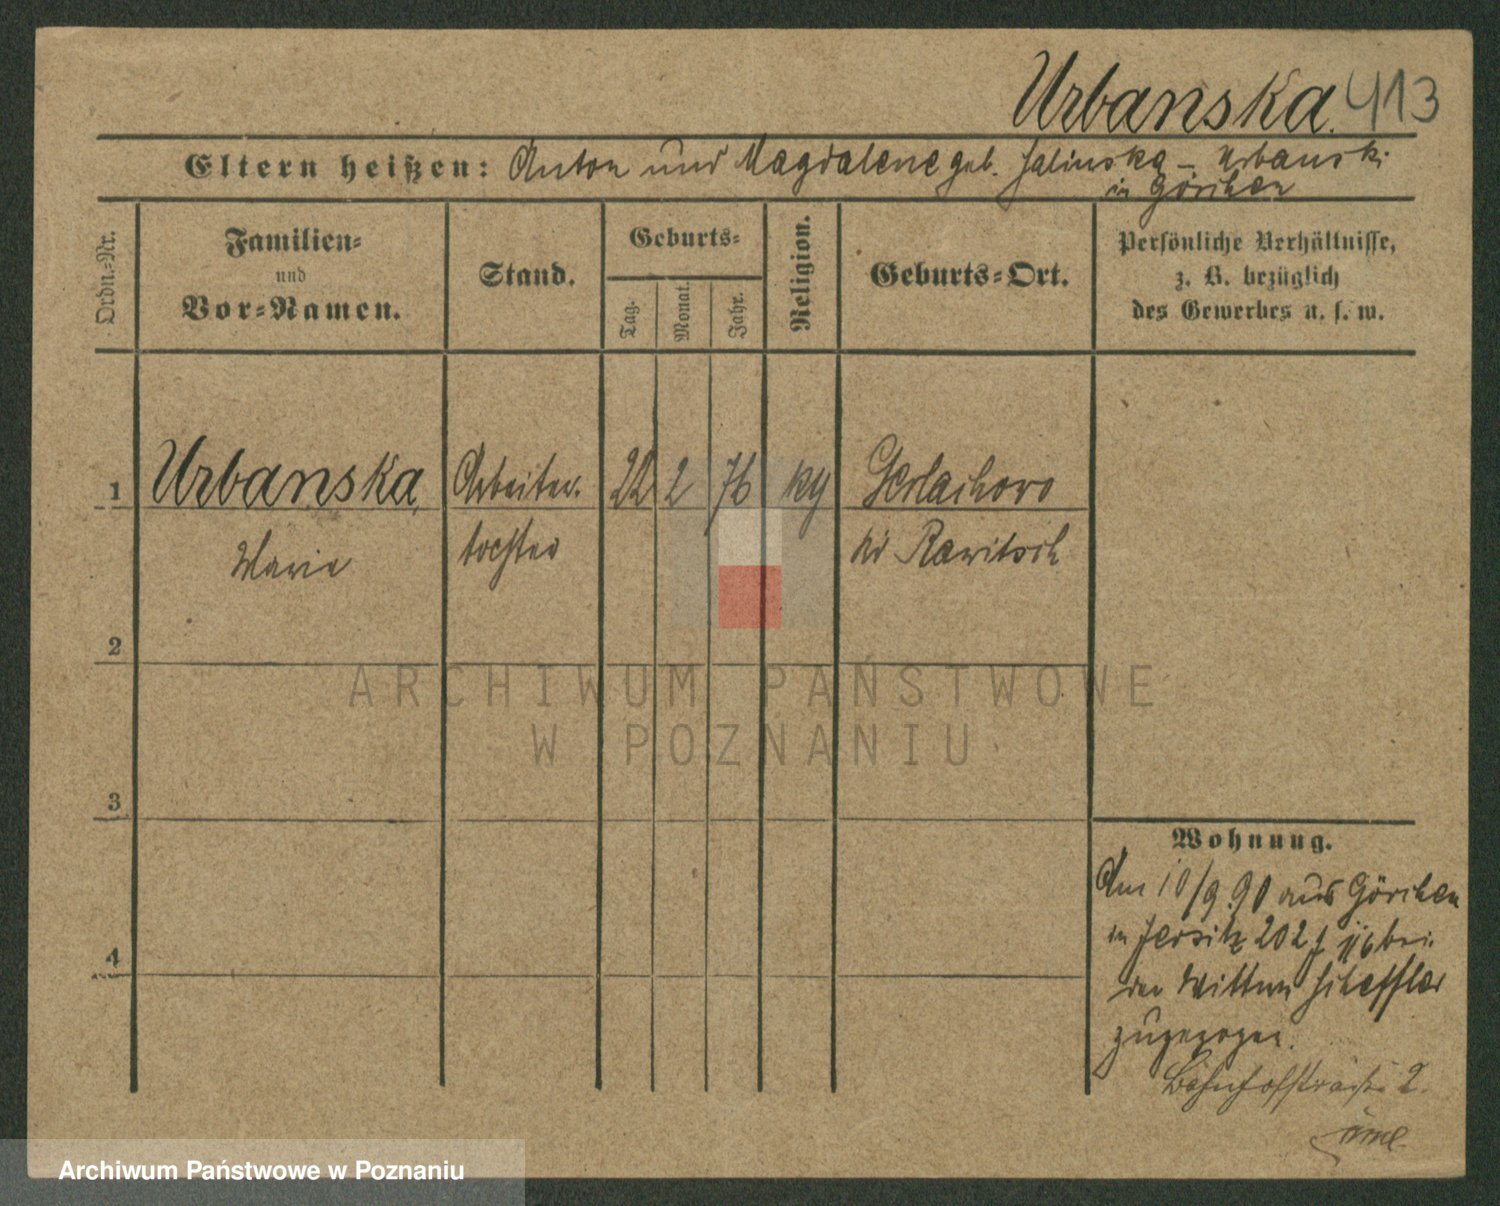 Urbanska. 413
Eltern heißen: Anton und Magdalene geb. Jalinska – Urbanski
in Görchen
Ordn.-Nr.
Familien-
und
Vor-Namen.
Stand.
Geburts-
Tag.
Monat.
Jahr.
Religion.
Geburts-Ort.
Persönliche Verhältnisse,
z. B. bezüglich
des Gewerbes u. s. w.
1 Urbanska, Arbeiter- 22 2 76 Gerlachowo
Marie tochter Rawitsch
2
3
4
Wohnung.
Am 10/9. 90 aus Görchen
in Jersitz 202 bei
der Wittwe Scheffler
zugezogen.
Bahnhofstraße 2.
ARCHIWUM PAŃSTWOWE
W POZNANIU
Archiwum Państwowe w Poznaniu